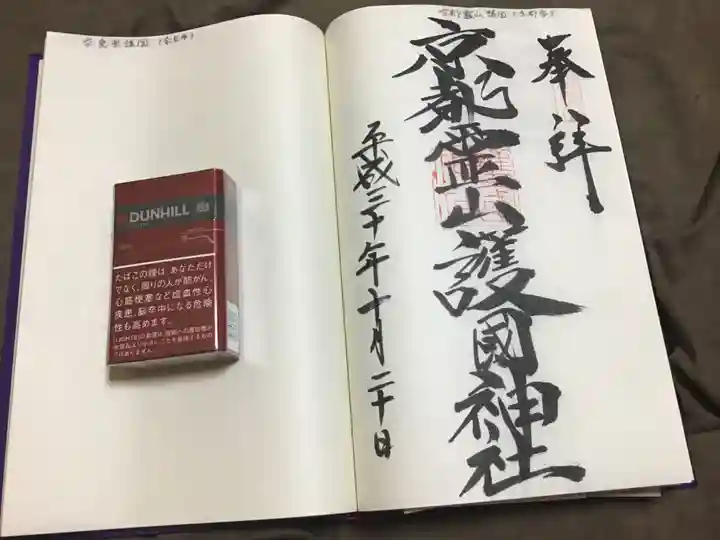 奈良縣護国(奈良市)
京都霊山護国(京都市)
奉拝
京都霊山護國神社
平成三十年十月二十日
DUNHILL
たばこの煙は、あなただけ
でなく、周りの人が肺がん、
心筋梗塞など虚血性心
疾患、脳卒中になる危険
性も高めます。